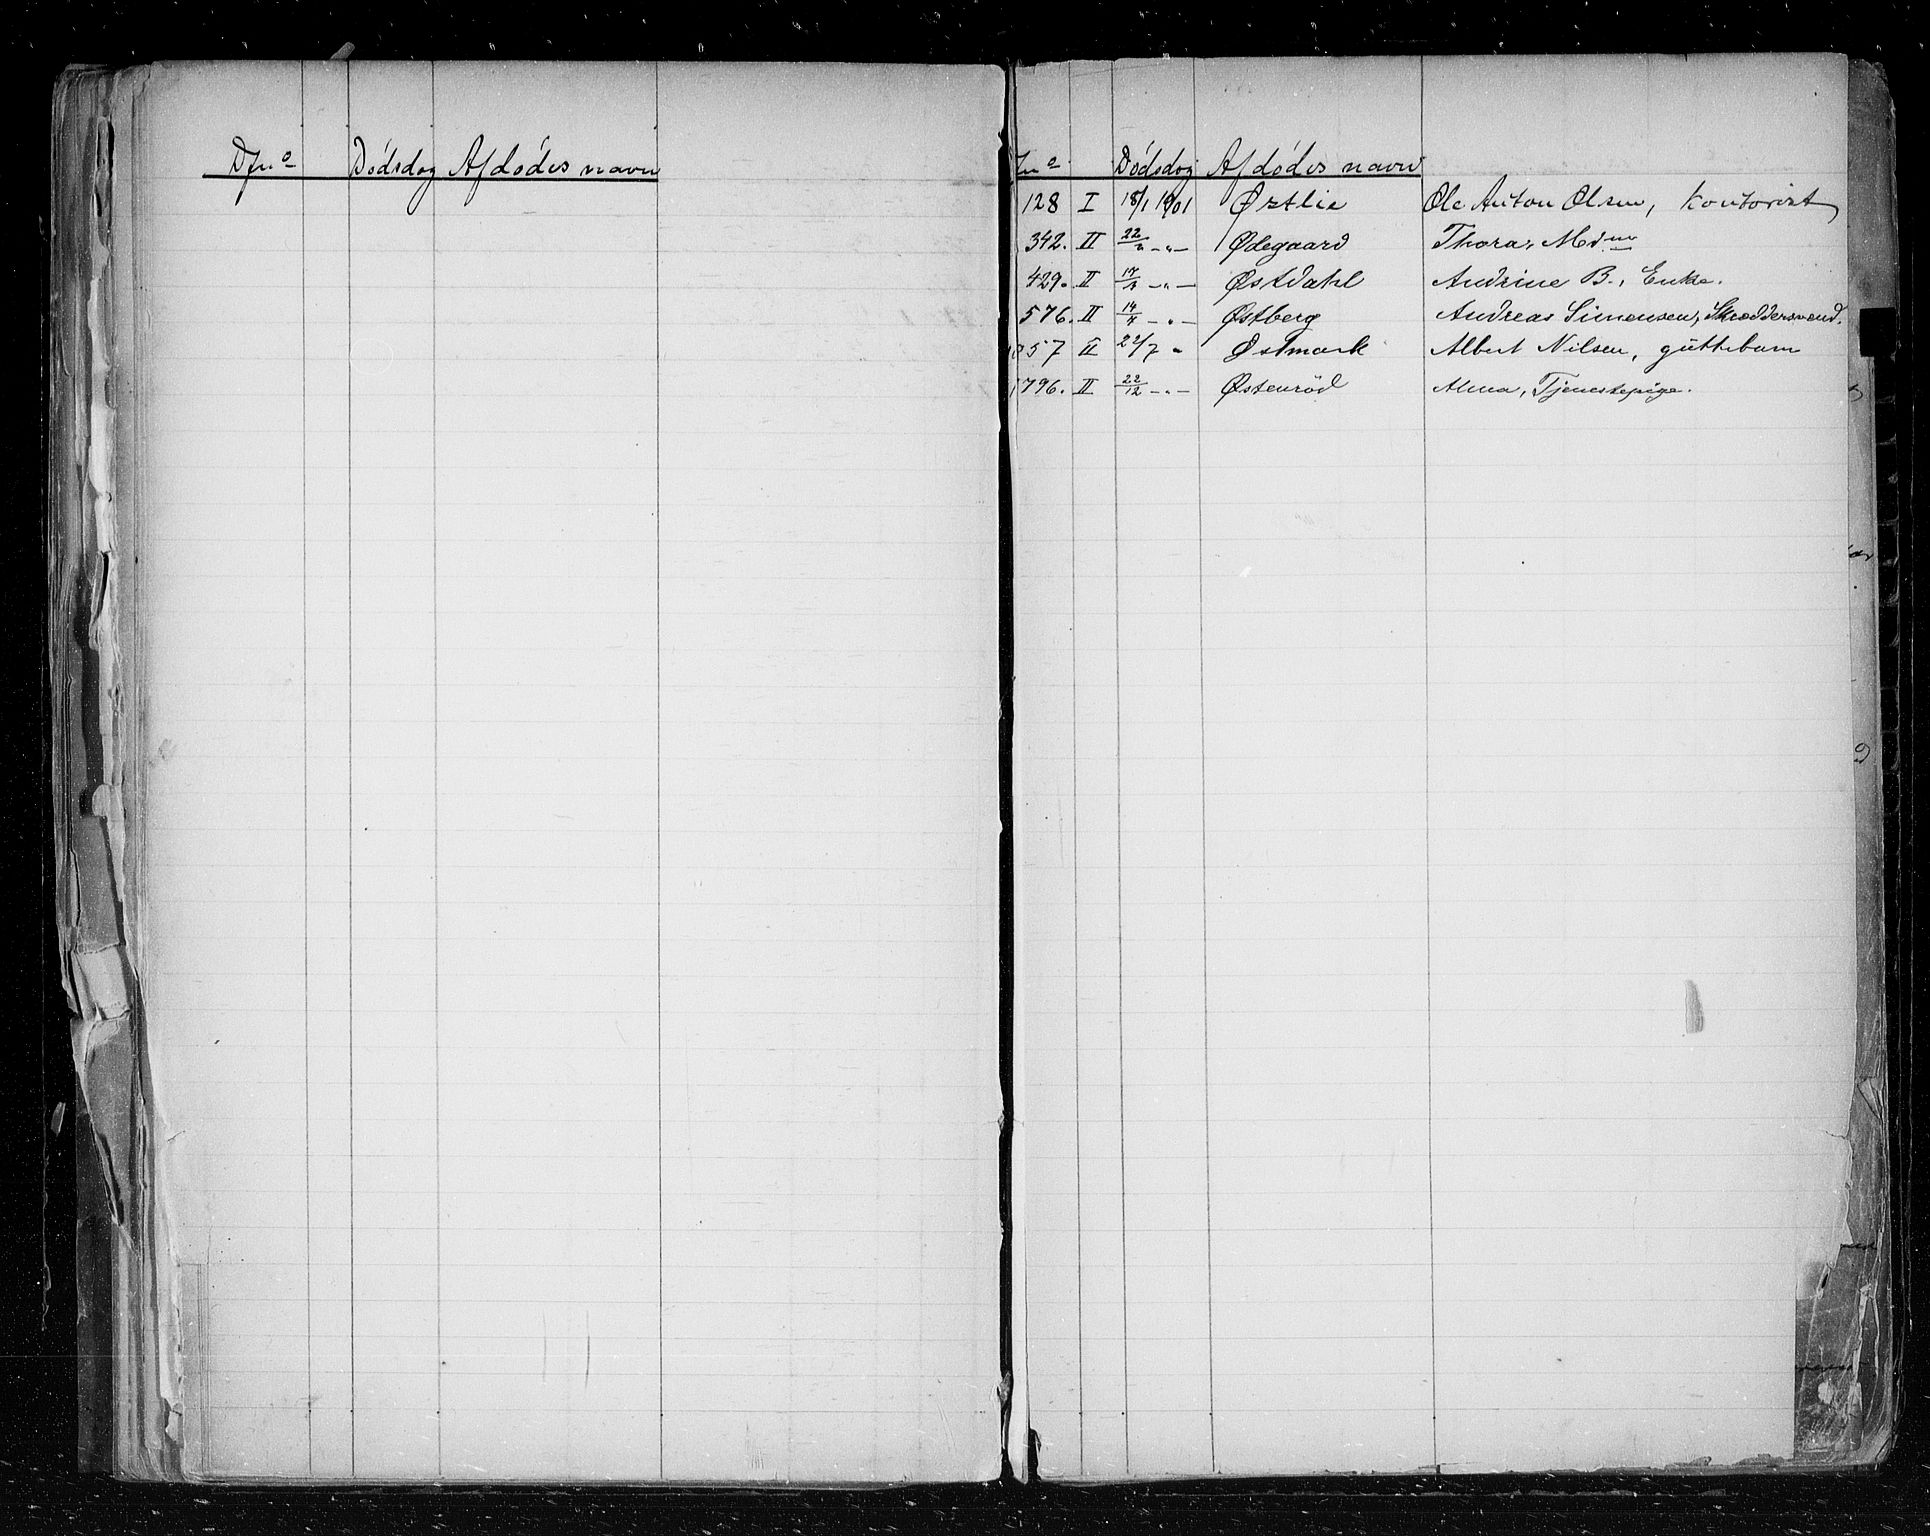 Djno Dødsdag Afdødes navn
Jno Dødsdag Afdødes navn
128 I 18/1 1901 Østlie Ole Anton Olsen, Kontorist
342. II 22/2 -"- Ødegaard Thora, Mdm
429. II -"- Østdahl Andrine B., Enke.
576. II 14/4 -"- Østberg Andreas Simensen, Skreddersvend.
1057 II 22/7 " Østmark Albert Nilsen, guttebarn
1796. II 22/12 -"- Østenrød Alma, Tjenestepige.